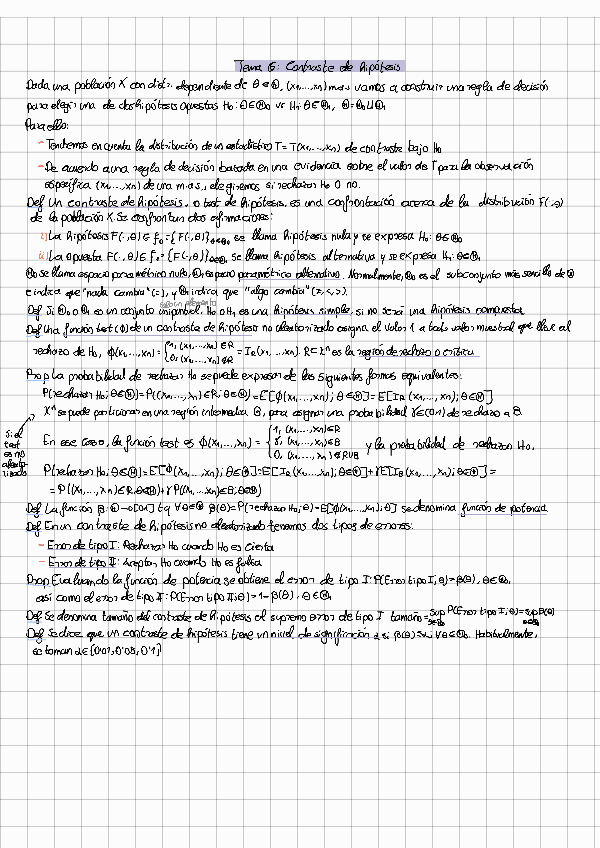 Tema 6: Contraste de hipótesis
Dada una población X con distr. dependiente de θ∈Θ, (X₁,...,Xₙ) mas vamos a construir una regla de decisión
para elegir una de dos hipótesis opuestas H₀: θ∈Θ₀ vs H₁: θ∈Θ₁, Θ=Θ₀⊔Θ₁
Para ello:
- Tendremos en cuenta la distribución de un estadístico T=T(X₁,...,Xₙ) de contraste bajo H₀
- De acuerdo a una regla de decisión basada en una evidencia sobre el valor de T para la observación
específica (x₁,...,xₙ) de una m.a.s., elegiremos si rechazar H₀ o no.
Def Un contraste de hipótesis, o test de hipótesis, es una confrontación acerca de la distribución F(·,θ)
de la población X. Se confrontan dos afirmaciones:
i) La hipótesis F(·,θ)∈F₀={F(·,θ)}θ∈Θ₀ se llama hipótesis nula y se expresa H₀: θ∈Θ₀
ii) La opuesta F(·,θ)∈F₁={F(·,θ)}θ∈Θ₁ se llama hipótesis alternativa y se expresa H₁: θ∈Θ₁
Θ₀ se llama espacio paramétrico nulo, Θ₁ espacio paramétrico alternativo. Normalmente, Θ₀ es el subconjunto más sencillo de Θ
e indica que "nada cambia" (=), y Θ₁ indica que "algo cambia" (≠,<,>).
Def Si Θ₀ o Θ₁ es un conjunto unipuntual, H₀ o H₁ es una hipótesis simple, si no será una hipótesis compuesta
Def Una función test (φ) de un contraste de hipótesis no aleatorizado asigna el valor 1 a todo valor muestral que lleve al
rechazo de H₀, φ(x₁,...,xₙ)={1, (x₁,...,xₙ)∈R 0, (x₁,...,xₙ)∉R = I_R(x₁,...,xₙ). R⊂Xⁿ es la región de rechazo o crítica
Prop La probabilidad de rechazar H₀ se puede expresar de las siguientes formas equivalentes:
P(rechazar H₀; θ∈Θ)=P((X₁,...,Xₙ)∈R; θ∈Θ)=E[φ(X₁,...,Xₙ); θ∈Θ]=E[I_R(X₁,...,Xₙ); θ∈Θ]
Xⁿ se puede particionar en una región intermedia B, para asignar una probabilidad γ∈(0,1) de rechazo a B.
Si el
test
es no
aleato-
rizado
En ese caso, la función test es φ(x₁,...,xₙ)={1, (x₁,...,xₙ)∈R γ, (x₁,...,xₙ)∈B 0, (x₁,...,xₙ)∉R∪B y la probabilidad de rechazar H₀.
P(rechazar H₀; θ∈Θ)=E[φ(X₁,...,Xₙ); θ∈Θ]=E[I_R(X₁,...,Xₙ); θ∈Θ]+γE[I_B(X₁,...,Xₙ); θ∈Θ]=
=P((X₁,...,Xₙ)∈R; θ∈Θ)+γP((X₁,...,Xₙ)∈B; θ∈Θ)
Def La función β:Θ→[0,1] tq ∀θ∈Θ β(θ)=P(rechazar H₀; θ)=E[φ(X₁,...,Xₙ); θ] se denomina función de potencia
Def En un contraste de hipótesis no aleatorizado tenemos dos tipos de errores:
- Error de tipo I: Rechazar H₀ cuando H₀ es cierta
- Error de tipo II: Aceptar H₀ cuando H₀ es falsa
Prop Evaluando la función de potencia se obtiene el error de tipo I: P(Error tipo I; θ)=β(θ), θ∈Θ₀,
así como el error de tipo II: P(Error tipo II; θ)=1-β(θ), θ∈Θ₁
Def Se denomina tamaño del contraste de hipótesis al supremo error de tipo I tamaño=sup θ∈Θ₀ P(Error tipo I; θ)=sup θ∈Θ₀ β(θ)
Def Se dice que un contraste de hipótesis tiene un nivel de significación α si β(θ)≤α, ∀θ∈Θ₀. Habitualmente,
se toman α∈{0'01, 0'05, 0'1}